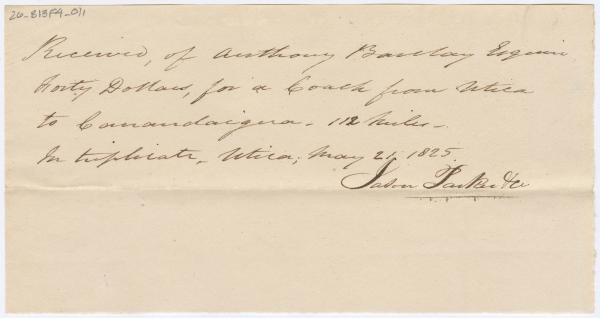 26_813F4_011
Received, of Anthony Barclay Esquire
Forty Dollars, for a Coach from Utica
to Canandaigua. 112 Miles.
In triplicate, Utica, May 21, 1825
Jason Parker & Co